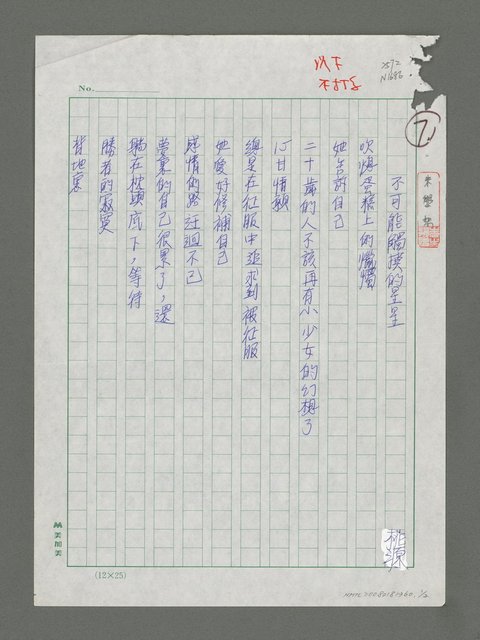 以下
不打字
2592
N1686
No.
7
不可能觸摸的星星
吹熄蛋糕上的蠟燭
她告訴自己
二十歲的人不該再有小少女的幻想了
心甘情願
總是在征服中追求到被征服
她愛好修補自己
感情的路迂迴不已
夢裏的自己很累了，還
躺在枕頭底下，等待
勝者的寂寞
背地裏
桃源
美加美
(12×25)